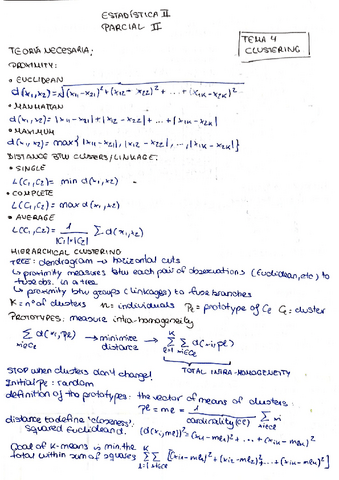 ESTADÍSTICA II
PARCIAL II
TEMA 4
CLUSTERING
TEORÍA NECESARIA:
PROXIMITY:
• EUCLIDEAN
d(x₁,x₂)=√(x₁₁-x₂₁)²+(x₁₂-x₂₂)²+...+(x₁ₖ-x₂ₖ)²
• MANHATTAN
d(x₁,x₂)=|x₁₁-x₂₁|+|x₁₂-x₂₂|+...+|x₁ₖ-x₂ₖ|
• MAXIMUM
d(x₁,x₂)= max{|x₁₁-x₂₁|,|x₁₂-x₂₂|,...,|x₁ₖ-x₂ₖ|}
DISTANCE BTW CLUSERS/LINKAGE:
• SINGLE
L(C₁,C₂)= min d(x₁,x₂)
• COMPLETE
L(C₁,C₂)= max d(x₁,x₂)
• AVERAGE
L(C₁,C₂)= 1/|C₁|*|C₂| Σ d(x₁,x₂)
HIERARCHICAL CLUSTERING
TREE: dendrogram → horizontal cuts
↳ proximity measures btw each pair of observations (Euclidean, etc) to
fuse obs. in a tree
↳ proximity btw groups (linkages) to fuse branches
K = nº of clusters n = individuals Pₗ = prototype of Cₗ Cₗ = cluster
PROTOTYPES: measure intra-homogeneity
Σ d(xᵢ,pₗ) → minimize distance → Σ Σ d(xᵢ,pₗ)
xᵢ∈Cₗ l=1 xᵢ∈Cₗ
TOTAL INTRA-HOMOGENEITY
STOP when clusters don't change!
Initial Pₗ: random
definition of the prototypes: the vector of means of clusters
pₗ = mₗ = 1/cardinality(Cₗ) Σ xᵢ
distance to define 'closeness':
squared Euclidean d. (d(xᵢ,mₗ))²=(xᵢ₁-mₗ₁)²+...+(xᵢₖ-mₗₖ)²
Goal of K-means is min. the
total within sum of squares Σ Σ [(xᵢ₁-mₗ₁)²+(xᵢ₂-mₗ₂)²+...+(xᵢₖ-mₗₖ)²]
l=1 xᵢ∈Cₗ